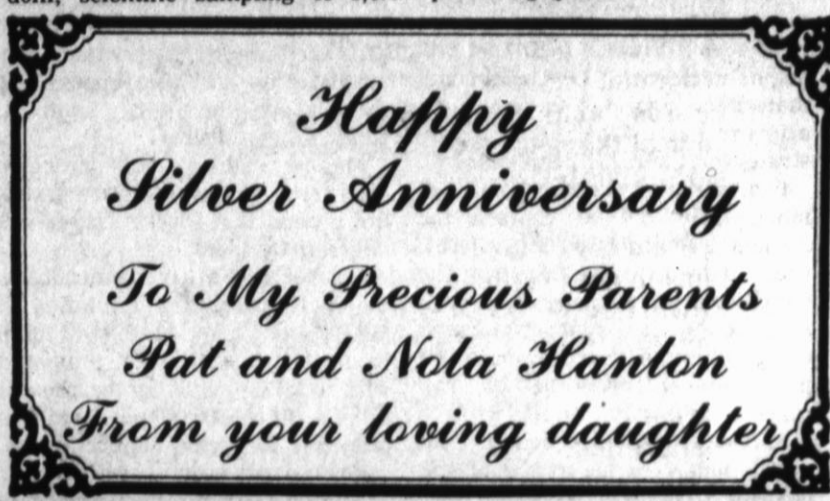 Happy
Silver Anniversary
To My Precious Parents
Pat and Nola Hanlon
From your loving daughter